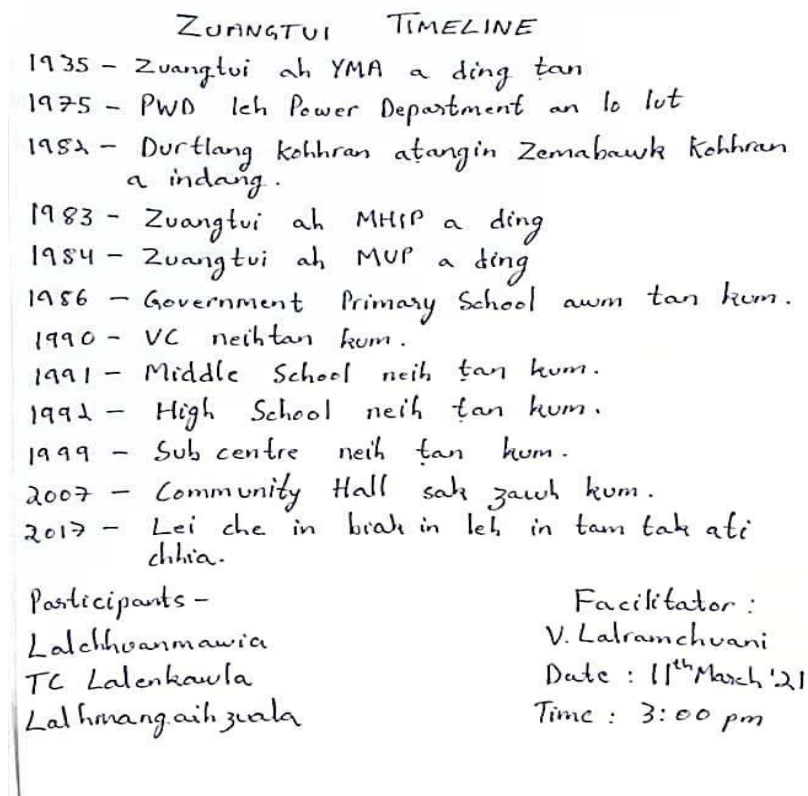 ZUANGTUI TIMELINE
1935 - Zuangtui ah YMA a ding ṭan
1975 - PWD leh Power Department an lo lut
1982 - Durtlang kohhran atangin Zemabawk Kohhran
a indang.
1983 - Zuangtui ah MHIP a ding
1984 - Zuangtui ah MUP a ding
1986 - Government Primary School awm tan kum.
1990 - VC neihtan kum.
1991 - Middle School neih ṭan kum.
1992 - High School neih ṭan kum.
1999 - Sub centre neih ṭan kum.
2007 - Community Hall sak zawh kum.
2017 - Lei che in biak in leh in tam tak ati
chhia.
Participants -
Lalchhuanmawia
TC Lalenkawla
Lalhmangaihzuala
Facilitator :
V. Lalramchuani
Date : 11th March '21
Time : 3:00 pm